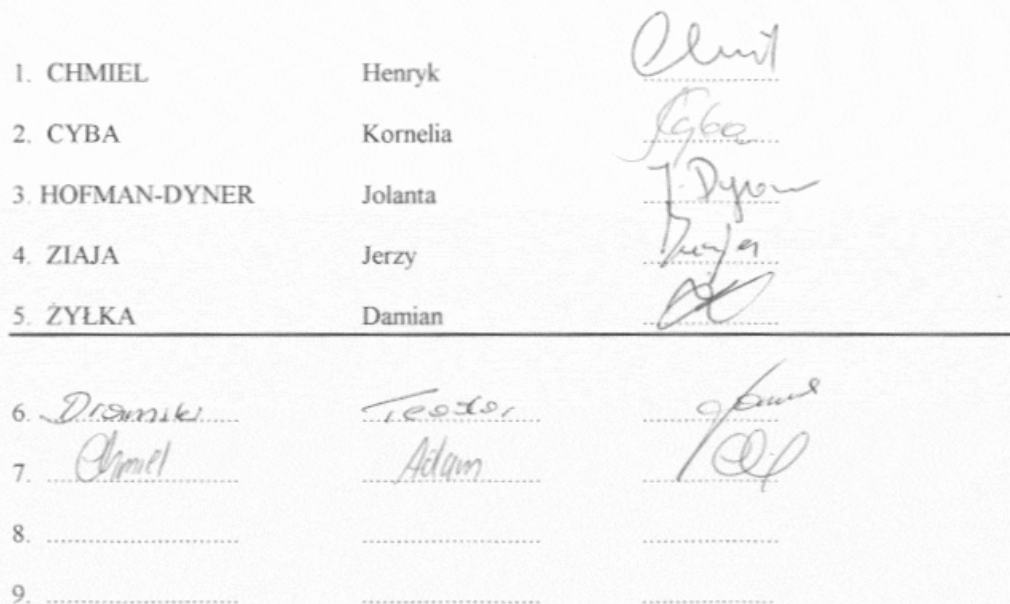 1. CHMIEL Henryk
2. CYBA Kornelia
3. HOFMAN-DYNER Jolanta
4. ZIAJA Jerzy
5. ŻYŁKA Damian
6. Teodor
7. Chmiel Adam
8.
9.